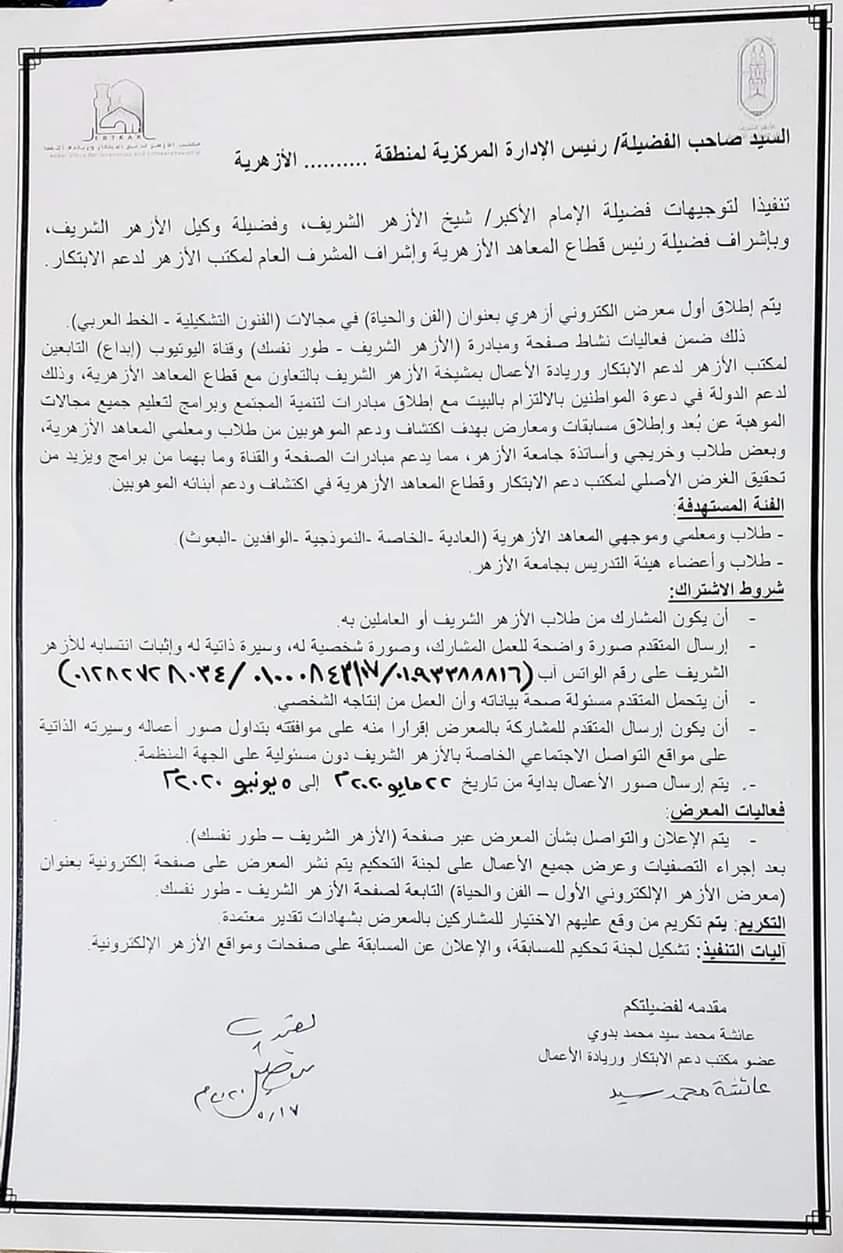 الأزهر الشريف
IBTKAR
مكتب الأزهر لدعم الابتكار وريادة الأعمال
السيد صاحب الفضيلة/ رئيس الإدارة المركزية لمنطقة .......... الأزهرية
تنفيذا لتوجيهات فضيلة الإمام الأكبر/ شيخ الأزهر الشريف، وفضيلة وكيل الأزهر الشريف،
وبإشراف فضيلة رئيس قطاع المعاهد الأزهرية وإشراف المشرف العام لمكتب الأزهر لدعم الابتكار.
يتم إطلاق أول معرض الكتروني أزهري بعنوان (الفن والحياة) في مجالات (الفنون التشكيلية - الخط العربي).
ذلك ضمن فعاليات نشاط صفحة ومبادرة (الأزهر الشريف - طور نفسك) وقناة اليوتيوب (إبداع) التابعين
لمكتب الأزهر لدعم الابتكار وريادة الأعمال بمشيخة الأزهر الشريف بالتعاون مع قطاع المعاهد الأزهرية، وذلك
لدعم الدولة في دعوة المواطنين بالالتزام بالبيت مع إطلاق مبادرات لتنمية المجتمع وبرامج لتعليم جميع مجالات
الموهبة عن بُعد وإطلاق مسابقات ومعارض بهدف اكتشاف ودعم الموهوبين من طلاب ومعلمي المعاهد الأزهرية،
وبعض طلاب وخريجي وأساتذة جامعة الأزهر، مما يدعم مبادرات الصفحة والقناة وما بهما من برامج ويزيد من
تحقيق الغرض الأصلي لمكتب دعم الابتكار وقطاع المعاهد الأزهرية في اكتشاف ودعم أبنائه الموهوبين.
الفئة المستهدفة:
- طلاب ومعلمي وموجهي المعاهد الأزهرية (العادية -الخاصة -النموذجية -الوافدين -البعوث).
- طلاب وأعضاء هيئة التدريس بجامعة الأزهر.
شروط الاشتراك:
- أن يكون المشارك من طلاب الأزهر الشريف أو العاملين به.
- إرسال المتقدم صورة واضحة للعمل المشارك، وصورة شخصية له، وسيرة ذاتية له وإثبات انتسابه للأزهر
الشريف على رقم الواتس آب
- أن يتحمل المتقدم مسئولة صحة بياناته وأن العمل من إنتاجه الشخصي.
- أن يكون إرسال المتقدم للمشاركة بالمعرض إقرارا منه على موافقته بتداول صور أعماله وسيرته الذاتية
على مواقع التواصل الاجتماعي الخاصة بالأزهر الشريف دون مسئولية على الجهة المنظمة.
-. يتم إرسال صور الأعمال بداية من تاريخ ٢٢ مايو ٢٠٢٠م إلى ٥ يونيو ٢٠٢٠م
فعاليات المعرض:
- يتم الإعلان والتواصل بشأن المعرض عبر صفحة (الأزهر الشريف – طور نفسك).
بعد إجراء التصفيات وعرض جميع الأعمال على لجنة التحكيم يتم نشر المعرض على صفحة إلكترونية بعنوان
(معرض الأزهر الإلكتروني الأول – الفن والحياة) التابعة لصفحة الأزهر الشريف - طور نفسك.
التكريم: يتم تكريم من وقع عليهم الاختيار للمشاركين بالمعرض بشهادات تقدير معتمدة.
آليات التنفيذ: تشكيل لجنة تحكيم للمسابقة، والإعلان عن المسابقة على صفحات ومواقع الأزهر الإلكترونية.
مقدمه لفضيلتكم
عائشة محمد سيد محمد بدوي
عضو مكتب دعم الابتكار وريادة الأعمال
عائشة محمد سيد
٢٠٢٠م
٥/١٧